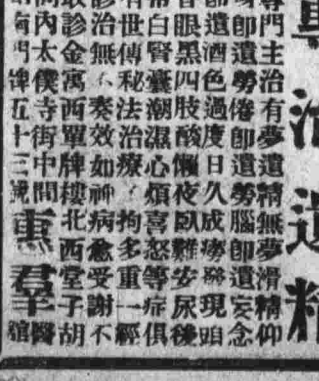 真治遺精
專門主治有夢遺精無夢滑精仰
臥卽遺勞倦卽遺勞腦卽遺妄念
卽遺酒色過度日久成癆縣現頭
眼黑四肢酸懶夜臥難安尿後
常白腎囊潮濕心煩喜怒等症俱
有世傳秘法治療 拘多重一經
診治無不奏效如神病愈受謝不
取診金寓西單牌樓北西堂子胡
同內太僕寺街中間 醫
門牌五十三號 熏羣館